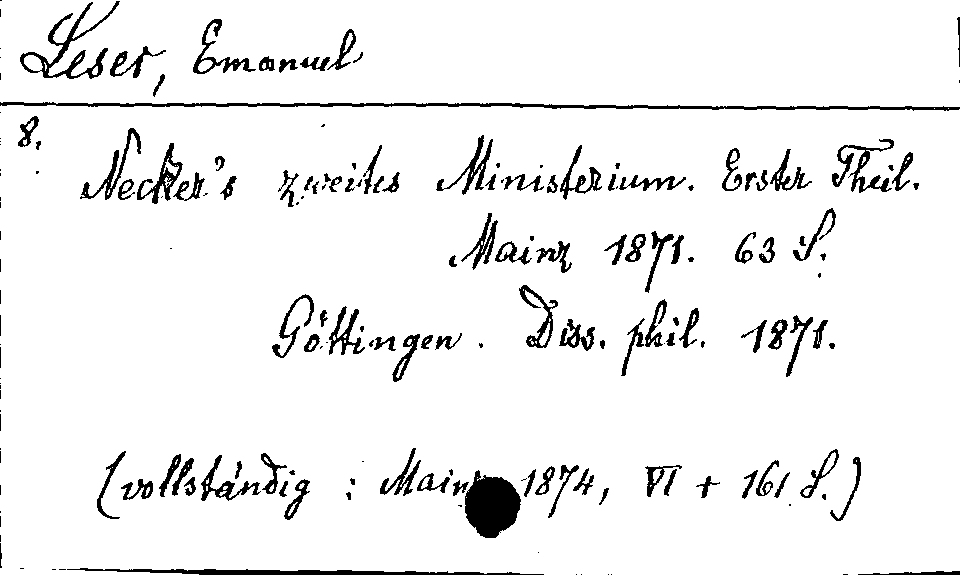 Leser, Emanuel
8.
Necker's zweites Ministerium. Erster Theil.
Mainz 1871. 63 S.
Göttingen. Diss. phil. 1871.
(vollständig : Mainz 1874, VI + 161 S.)